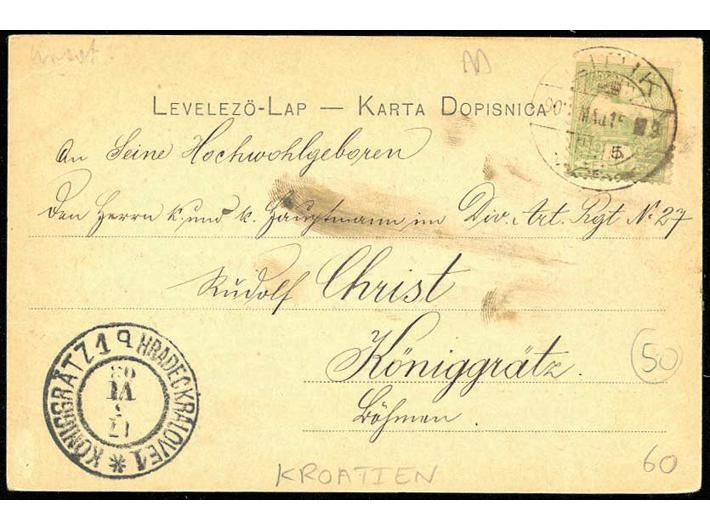 LEVELEZÖ-LAP — KARTA DOPISNICA
An Seine Hochwohlgeboren
den Herrn k. und k. Hauptmann im Div. Art. Rgt No 27
Rudolf Christ
Königgrätz.
Böhmen.
50
60
KÖNIGGRÄTZ 1 * HRADEC KRÁLOVÉ 1
VI
03
KROATIEN
5